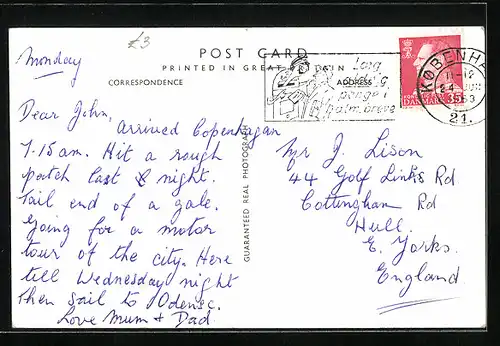 £3
Monday
POST CARD
PRINTED IN GREAT BRITAIN
CORRESPONDENCE
ADDRESS
Dear John,
Arrived Copenhagen
7.15 am. Hit a rough
patch last night.
Tail end of a gale.
Going for a motor
tour of the city. Here
till Wednesday night
then sail to Odense.
Love Mum + Dad
GUARANTEED REAL PHOTOGRAPH
Læg
aldrig
penge i
alm. breve
KØBENHA
11-12
1963
21.
DANMARK 35
Mr J Lison
44 Golf Links Rd
Cottingham Rd
Hull.
E. Yorks.
England